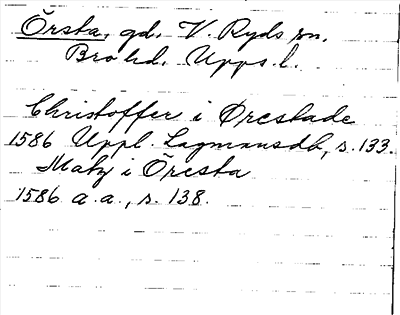 Örsta, gd, V. Ryds sn,
Bro hd. Upps. l.
Christoffer i Ørestade
1586 Uppl. Lagmansdb, s. 133.
Matz i Öresta
1586 a.a., s. 138.